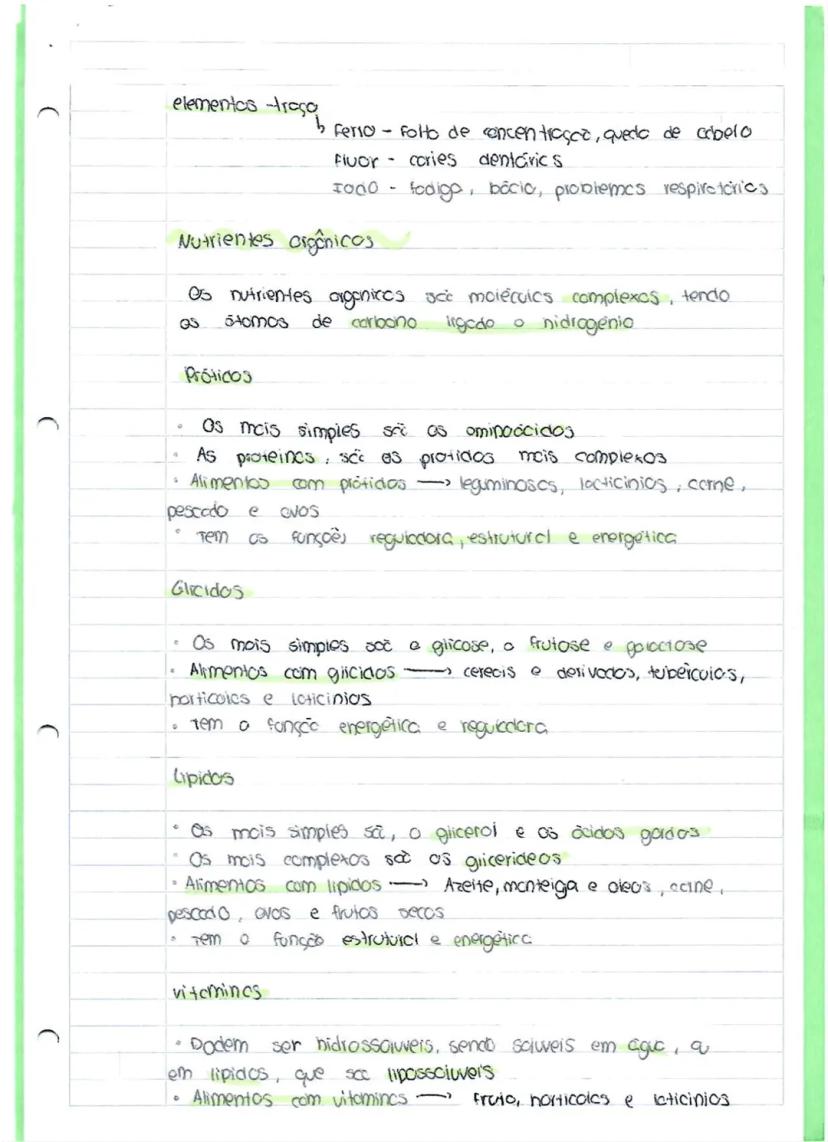 elementos -traço
↳ Ferro - Falta de concentração, queda de cabelo
Fluor - caries dentárias
Iodo - fadiga, bócio, problemas respiratórios
Nutrientes orgânicos
Os nutrientes organicos são moléculas complexas, tendo
os átomos de carbono ligado o hidrogénio
Prótidos
• Os mais simples são os aminoácidos
• As proteinas, são os protidos mais complexos
• Alimentos com prótidos → leguminosas, lacticinios, carne,
pescado e ovos
• Tem as funções reguladora, estrutural e energética
Glicidos
• Os mais simples são a glicose, a frutose e galactose
• Alimentos com glicidos → cereais e derivados, tubérculos,
hortícolas e laticinios
• Tem a função energética e reguladora
Lipidos
• Os mais simples são, o glicerol e os ácidos gordos
• Os mais complexos são os glicerideos
• Alimentos com lipidos → Azeite, manteiga e oleos, carne,
pescado, ovos e frutos secos
• Tem a função estrutural e energética
vitaminas
• Podem ser hidrossoluveis, sendo soluveis em água, e
em lipidos, que são lipossoluveis
• Alimentos com vitaminas → fruta, horticolas e laticinios